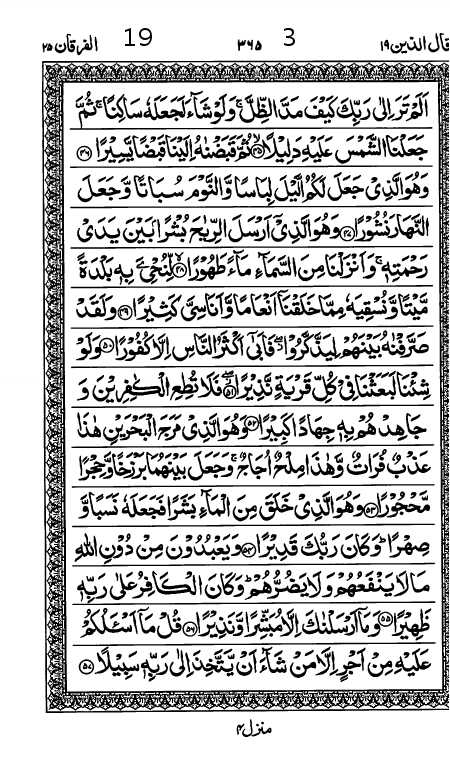 قال الذين ١٩ 3 ٣٦٥ 19 الفرقان ٢٥
اَلَمْ تَرَ اِلٰى رَبِّكَ كَيْفَ مَدَّ الظِّلَّ ۚ وَلَوْ شَآءَ لَجَعَلَهٗ سَاكِنًا ۚ ثُمَّ
جَعَلْنَا الشَّمْسَ عَلَيْهِ دَلِيْلًا ﴿٤٥﴾ ثُمَّ قَبَضْنٰهُ اِلَيْنَا قَبْضًا يَّسِيْرًا ﴿٤٦﴾
وَهُوَ الَّذِىْ جَعَلَ لَكُمُ الَّيْلَ لِبَاسًا وَّالنَّوْمَ سُبَاتًا وَّجَعَلَ
النَّهَارَ نُشُوْرًا ﴿٤٧﴾ وَهُوَ الَّذِىْۤ اَرْسَلَ الرِّيٰحَ بُشْرًۢا بَيْنَ يَدَىْ
رَحْمَتِهٖ ۚ وَاَنْزَلْنَا مِنَ السَّمَآءِ مَآءً طَهُوْرًا ﴿٤٨﴾ لِّنُحْۦِىَ بِهٖ بَلْدَةً
مَّيْتًا وَّنُسْقِيَهٗ مِمَّا خَلَقْنَاۤ اَنْعَامًا وَّاَنَاسِىَّ كَثِيْرًا ﴿٤٩﴾ وَلَقَدْ
صَرَّفْنٰهُ بَيْنَهُمْ لِيَذَّكَّرُوْا ۖ فَاَبٰۤى اَكْثَرُ النَّاسِ اِلَّا كُفُوْرًا ﴿٥٠﴾ وَلَوْ
شِئْنَا لَبَعَثْنَا فِىْ كُلِّ قَرْيَةٍ نَّذِيْرًا ﴿٥١﴾ فَلَا تُطِعِ الْكٰفِرِيْنَ وَ
جَاهِدْهُمْ بِهٖ جِهَادًا كَبِيْرًا ﴿٥٢﴾ وَهُوَ الَّذِىْ مَرَجَ الْبَحْرَيْنِ هٰذَا
عَذْبٌ فُرَاتٌ وَّهٰذَا مِلْحٌ اُجَاجٌ ۚ وَجَعَلَ بَيْنَهُمَا بَرْزَخًا وَّحِجْرًا
مَّحْجُوْرًا ﴿٥٣﴾ وَهُوَ الَّذِىْ خَلَقَ مِنَ الْمَآءِ بَشَرًا فَجَعَلَهٗ نَسَبًا وَّ
صِهْرًا ؕ وَكَانَ رَبُّكَ قَدِيْرًا ﴿٥٤﴾ وَيَعْبُدُوْنَ مِنْ دُوْنِ اللّٰهِ
مَا لَا يَنْفَعُهُمْ وَلَا يَضُرُّهُمْ ؕ وَكَانَ الْكَافِرُ عَلٰى رَبِّهٖ
ظَهِيْرًا ﴿٥٥﴾ وَمَاۤ اَرْسَلْنٰكَ اِلَّا مُبَشِّرًا وَّنَذِيْرًا ﴿٥٦﴾ قُلْ مَاۤ اَسْئَلُكُمْ
عَلَيْهِ مِنْ اَجْرٍ اِلَّا مَنْ شَآءَ اَنْ يَّتَّخِذَ اِلٰى رَبِّهٖ سَبِيْلًا ﴿٥٧﴾
منزل ٤